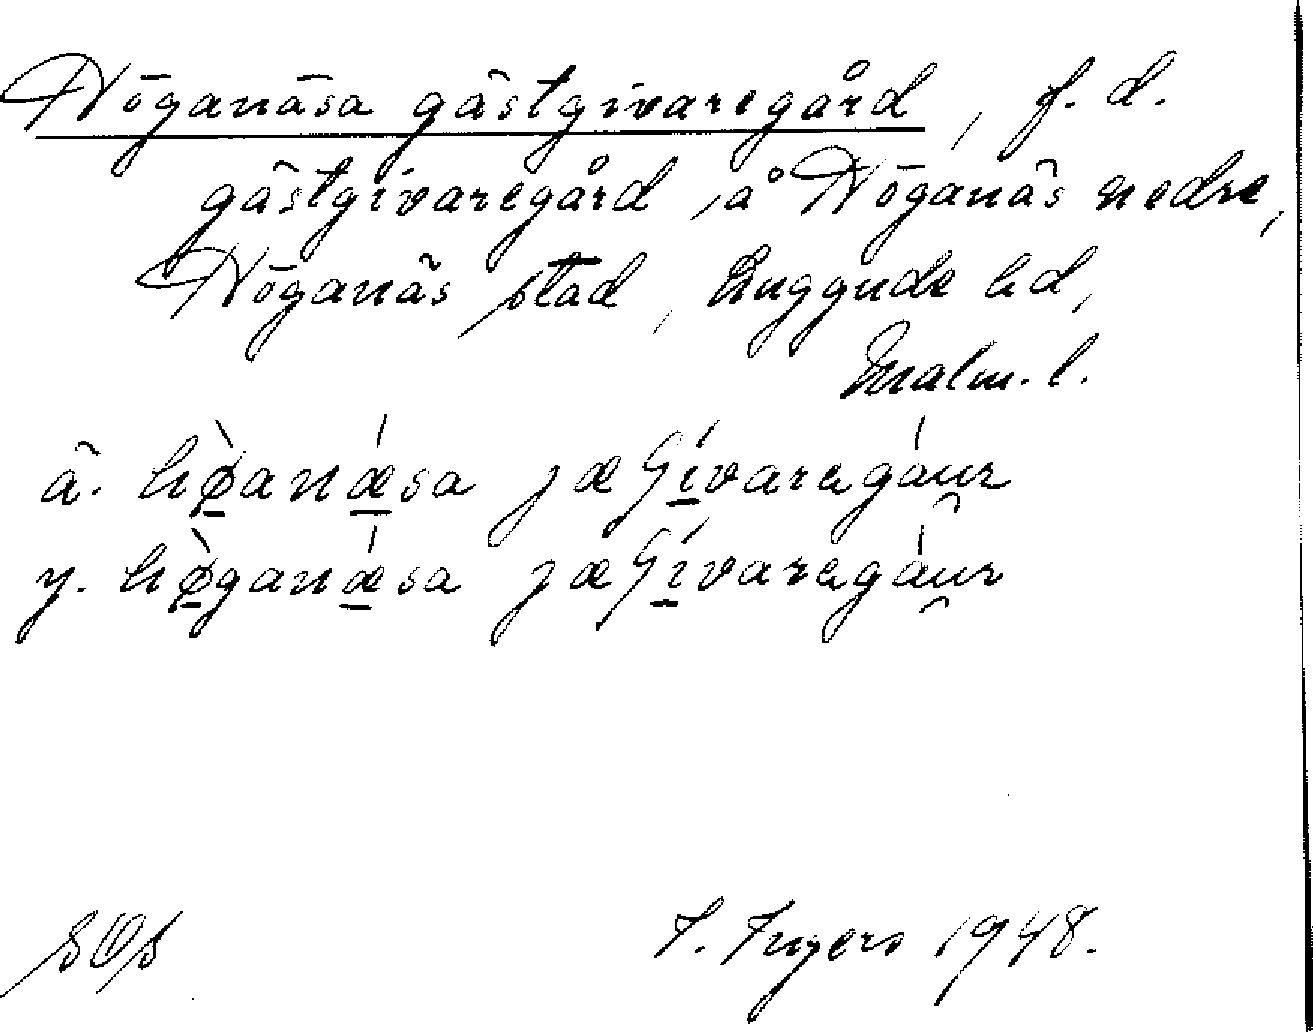 Höganäsa gästgivaregård, f. d.
gästgivaregård å Höganäs nedre,
Höganäs stad, Luggude hd,
Malm. l.
ä. hø̀anǽsa jæʃívaregáur
y. hø̀ganǽsa jæʃívaregáur
SOS
I. Ingers 1948.